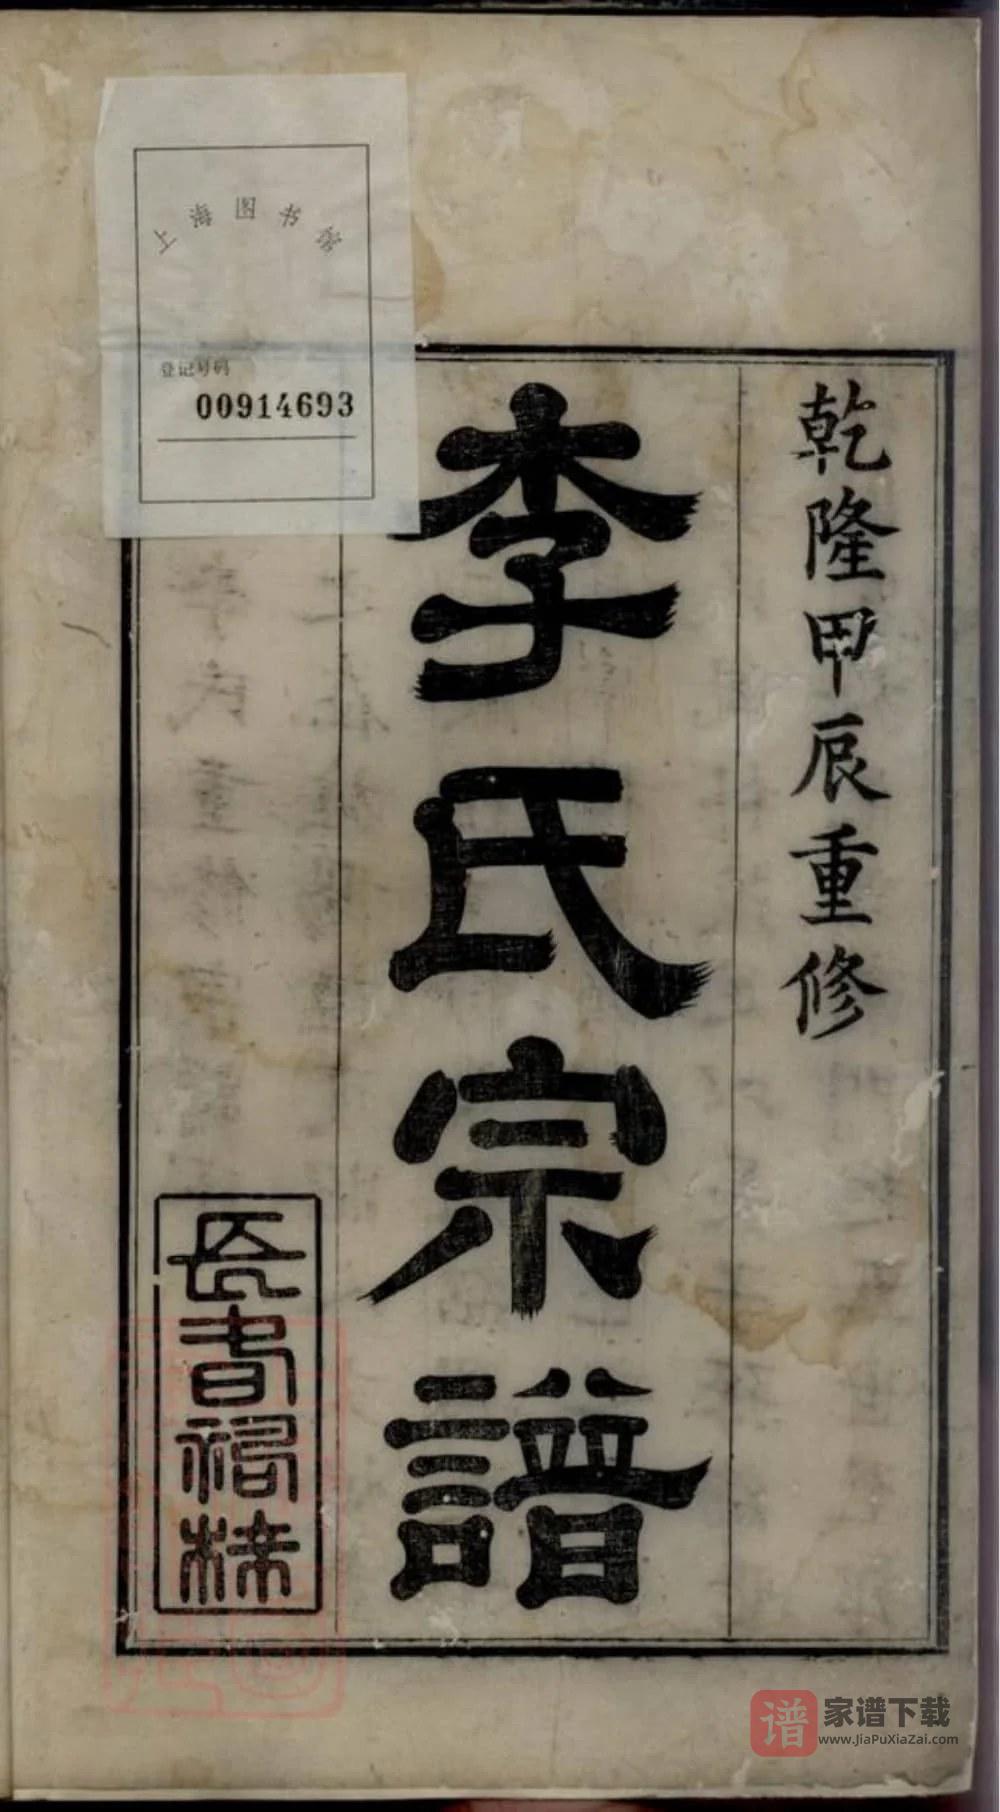 乾隆甲辰重修
李氏宗譜
上海图书馆
登记号码
00914693
谱 家谱下载
www.JiaPuXiaZai.com